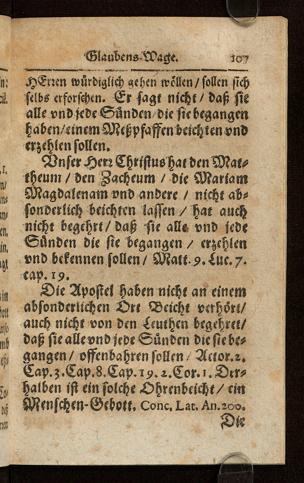 Glaubens-Wage. 107
HErren würdiglich gehen wöllen / sollen sich
selbs erforschen. Er sagt nicht / daß sie
alle vnd jede Sünden / die sie begangen
haben / einem Meßpfaffen beichten vnd
erzehlen sollen.
Vnser Herr Christus hat den Mat-
theum / den Zacheum / die Mariam
Magdalenam vnd andere / nicht ab-
sonderlich beichten lassen / hat auch
nicht begehrt / daß sie alle vnd jede
Sünden die sie begangen / erzehlen
vnd bekennen sollen / Matt. 9. Luc. 7.
cap. 19.
Die Apostel haben nicht an einem
absonderlichen Ort Beicht verhört /
auch nicht von den Leuthen begehret /
daß sie alle vnd jede Sünden die sie be-
gangen / offenbahren sollen / Actor. 2.
Cap. 3. Cap. 8. Cap. 19. 2. Cor. 1. Der-
halben ist ein solche Ohrenbeicht / ein
Menschen-Gebott. Conc. Lat. An. 200.
Die